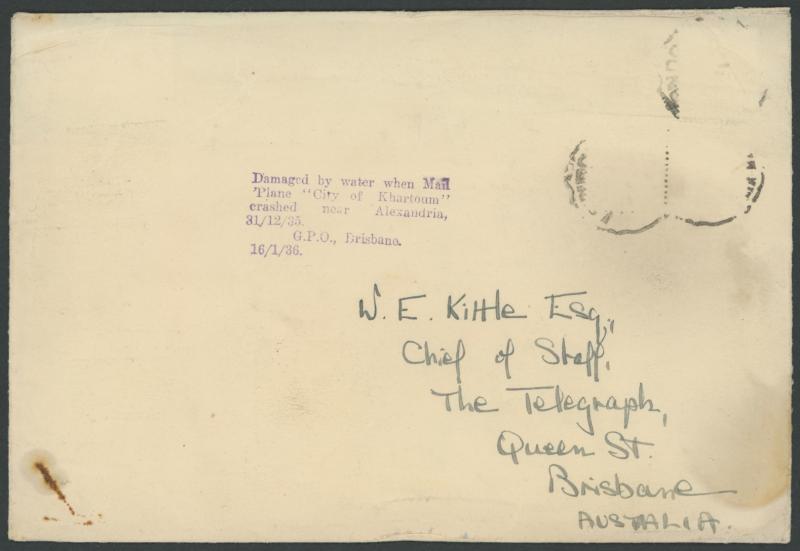 Damaged by water when Mail
'Plane "City of Khartoum"
crashed near Alexandria,
31/12/35.
G.P.O., Brisbane.
16/1/36.
W. E. Kittle Esq.,
Chief of Staff,
The Telegraph,
Queen St.
Brisbane
AUSTALIA.